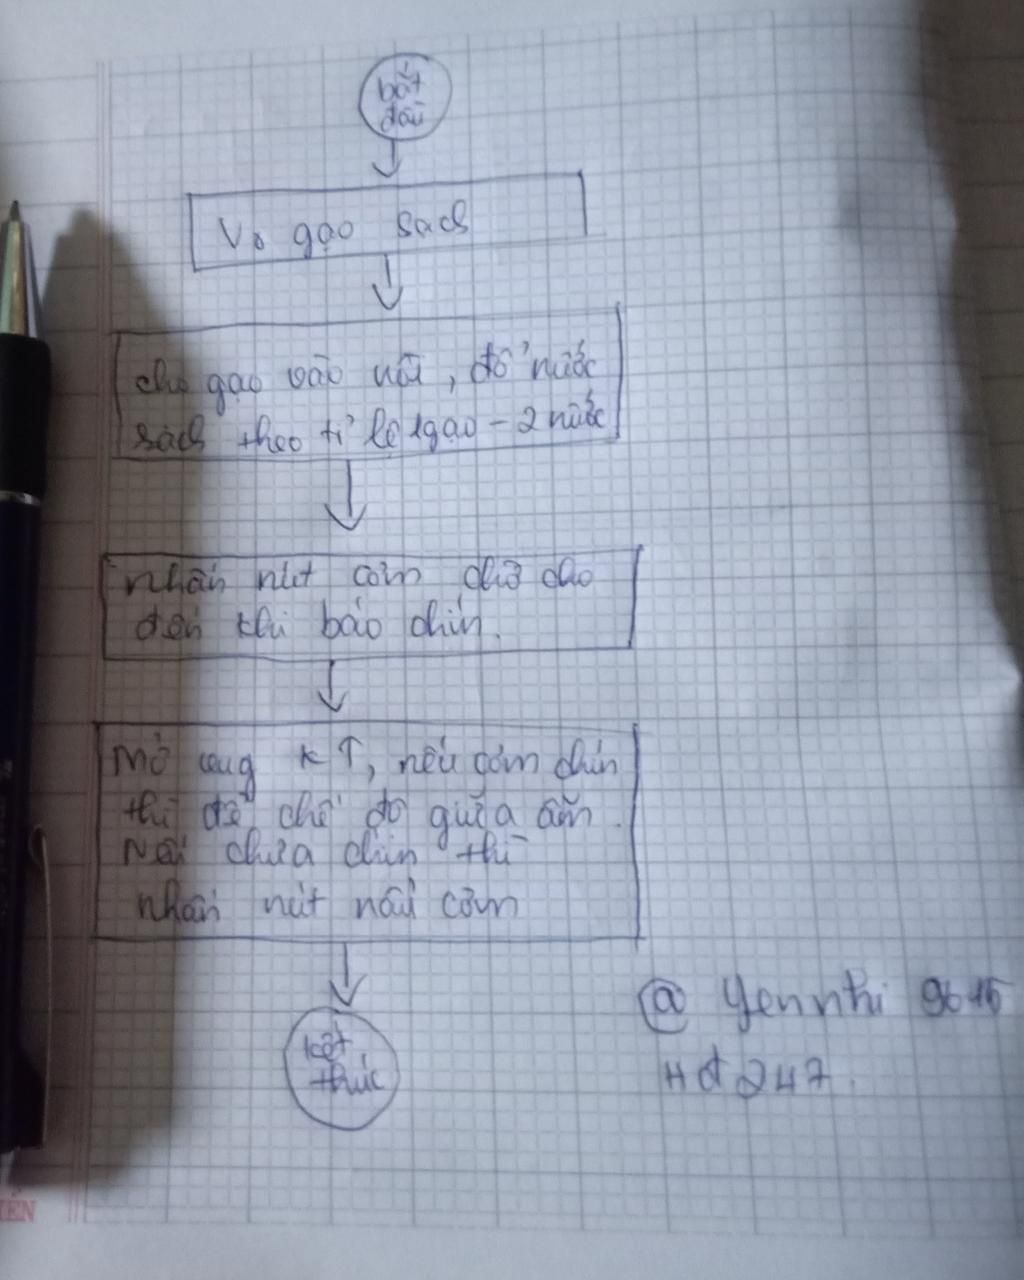 bắt
đầu
Vo gạo sạch
cho gạo vào nồi, đổ nước
sạch theo tỉ lệ 1gạo - 2 nước
nhấn nút cơm chờ cho
đến khi báo chín.
Mở vung KT, nếu cơm chín
thì để chế độ giữa ấm.
Nếu chưa chín thì
nhấn nút nấu cơm
kết
thúc
@ Yennhi 9615
Hđ 247.
ỀN